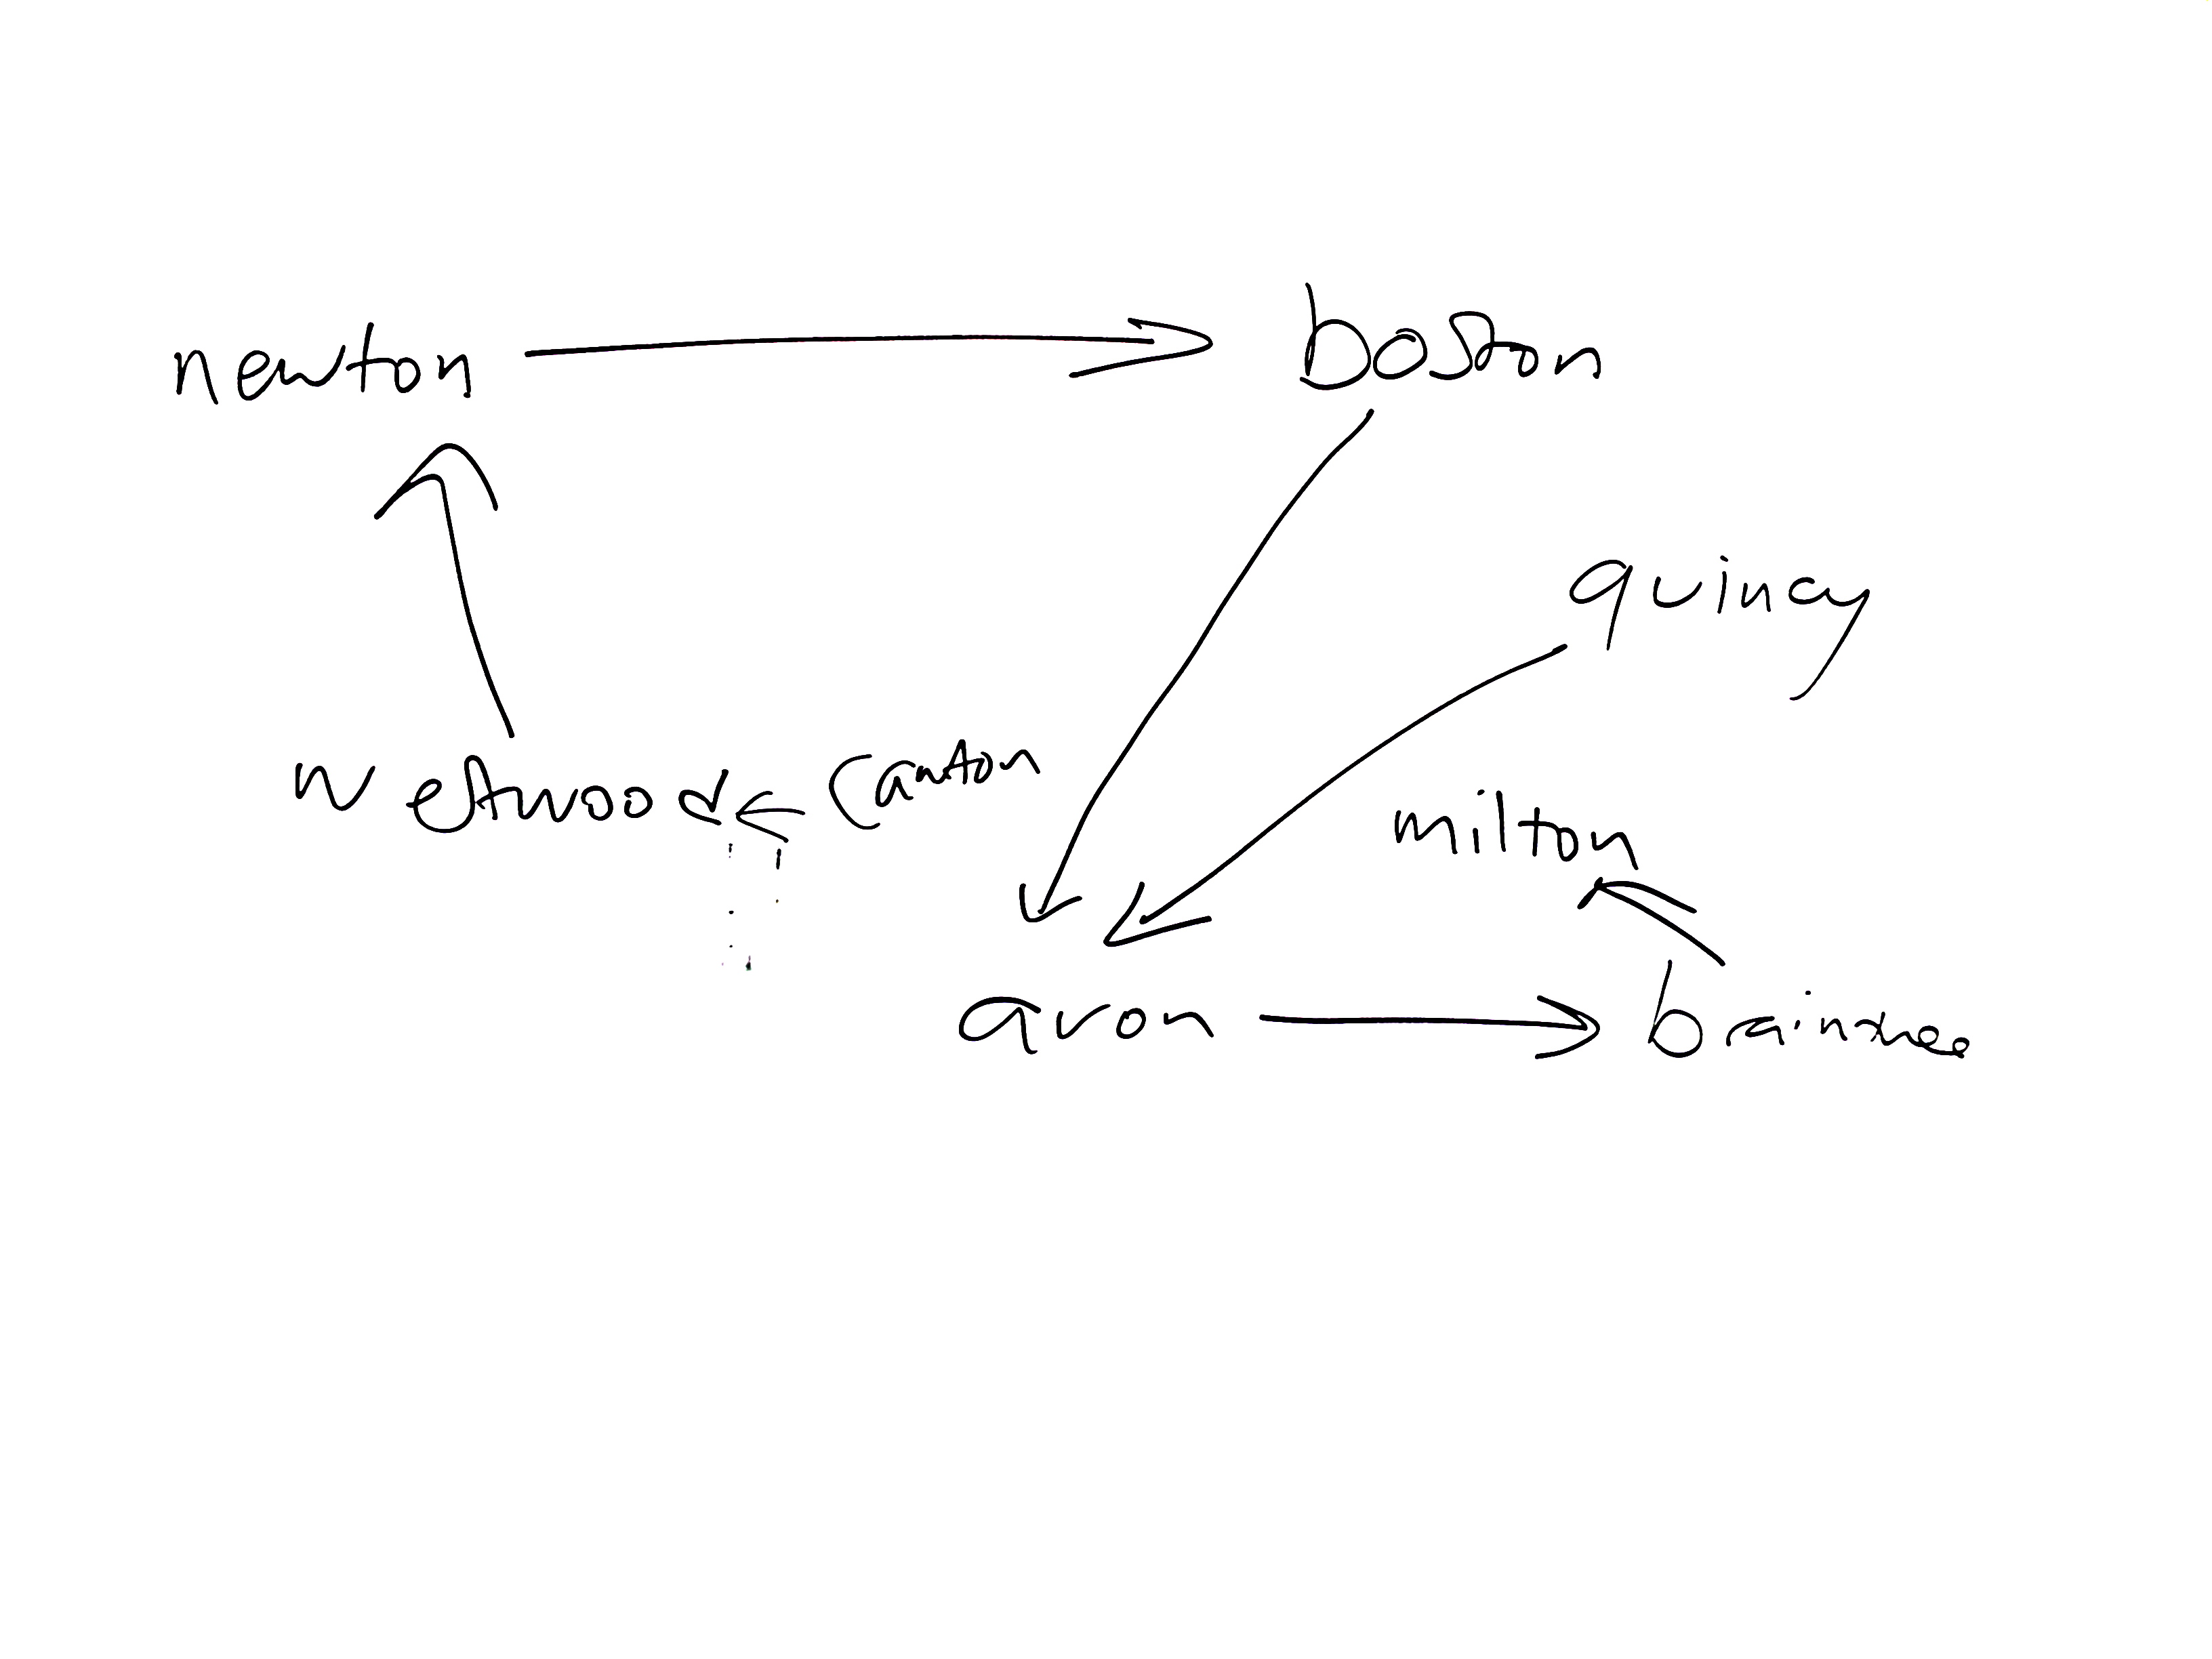 newton
boston
quincy
westwood
canton
milton
avon